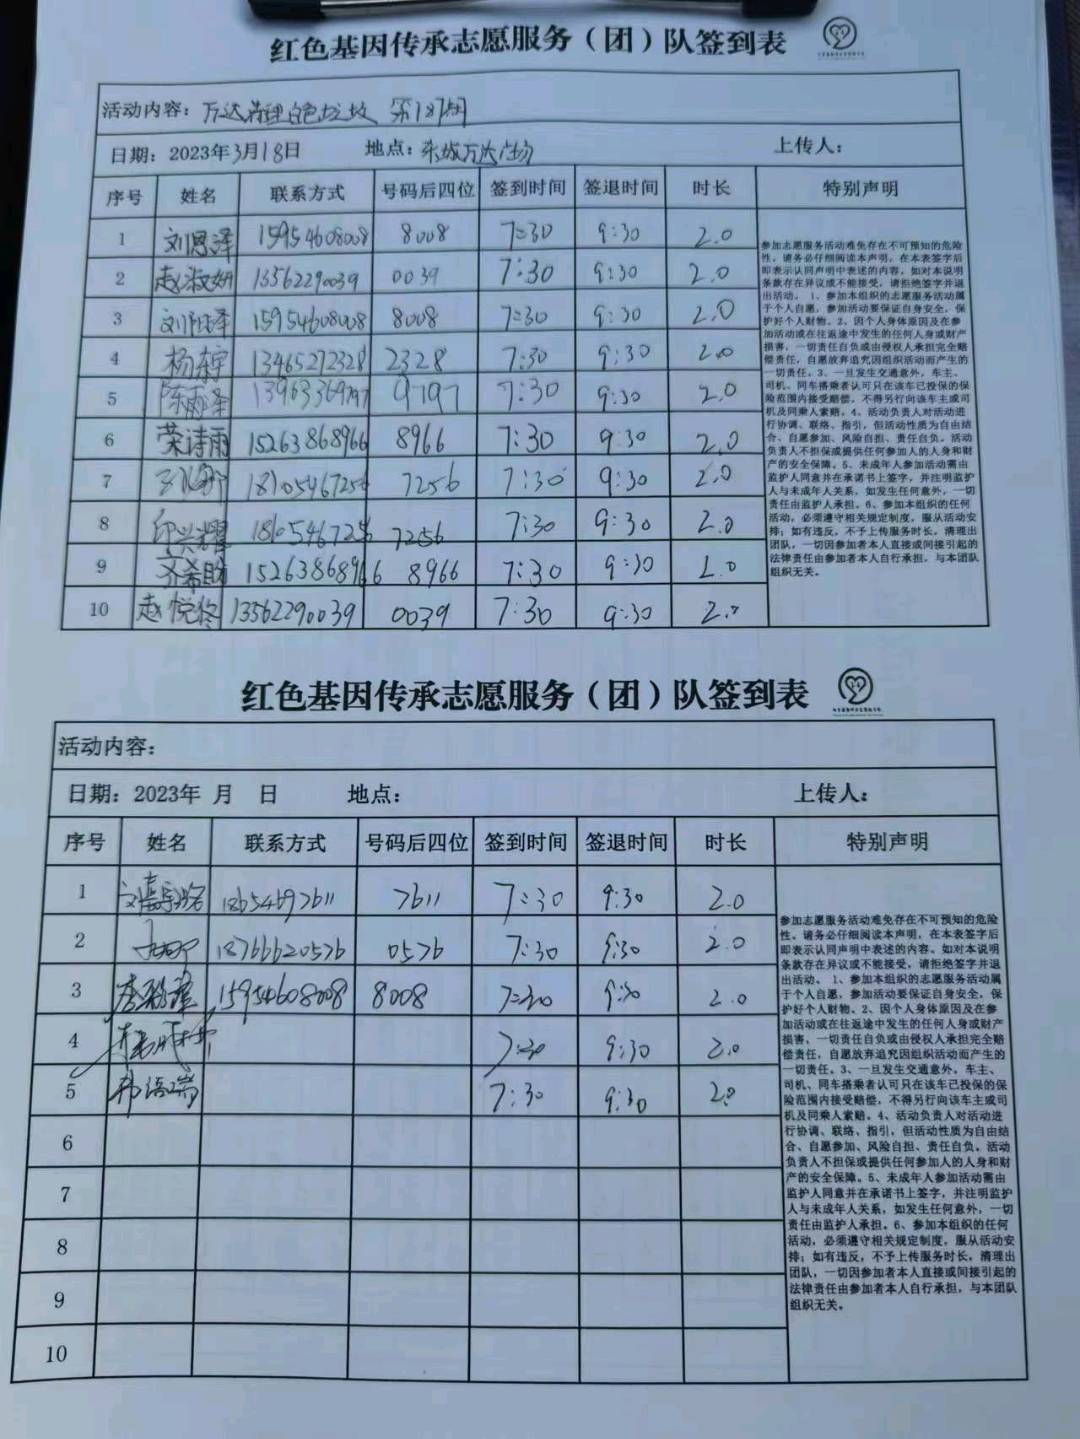 红色基因传承志愿服务（团）队签到表
活动内容：万达清理白色垃圾 第187期
日期：2023年3月18日 地点：东城万达广场 上传人：
序号 姓名 联系方式 号码后四位 签到时间 签退时间 时长 特别声明
1 刘恩泽 15954608008 8008 7:30 9:30 2.0
2 赵淑妍 13562290039 0039 7:30 9:30 2.0
3 刘阳泽 15954608008 8008 7:30 9:30 2.0
4 杨 13465272328 2328 7:30 9:30 2.0
5 陈雨泽 13963369797 9797 7:30 9:30 2.0
6 荣诗雨 15263868966 8966 7:30 9:30 2.0
7 18105467256 7256 7:30 9:30 2.0
8 印兴耀 18105467256 7256 7:30 9:30 2.0
9 齐希 15263868966 8966 7:30 9:30 2.0
10 赵悦彤 13562290039 0039 7:30 9:30 2.0
参加志愿服务活动难免存在不可预知的危险
性，请务必仔细阅读本声明，在本表签字后
即表示认同声明中表述的内容，如对本说明
条款存在异议或不能接受，请拒绝签字并退
出活动。 1、参加本组织的志愿服务活动属
于个人自愿，参加活动要保证自身安全，保
护好个人财物。2、因个人身体原因及在参
加活动或在往返途中发生的任何人身或财产
损害，一切责任自负或由侵权人承担完全赔
偿责任，自愿放弃追究因组织活动而产生的
一切责任。3、一旦发生交通意外，车主、
司机、同车搭乘者认可只在该车已投保的保
险范围内接受赔偿，不得另行向该车主或司
机及同乘人索赔。4、活动负责人对活动进
行协调、联络、指引，但活动性质为自由结
合、自愿参加、风险自担、责任自负。活动
负责人不担保或提供任何参加人的人身和财
产的安全保障。5、未成年人参加活动需由
监护人同意并在承诺书上签字，并注明监护
人与未成年人关系，如发生任何意外，一切
责任由监护人承担。6、参加本组织的任何
活动，必须遵守相关规定制度，服从活动安
排；如有违反，不予上传服务时长，清理出
团队，一切因参加者本人直接或间接引起的
法律责任由参加者本人自行承担，与本团队
组织无关。
红色基因传承志愿服务（团）队签到表
活动内容：
日期：2023年 月 日 地点： 上传人：
序号 姓名 联系方式 号码后四位 签到时间 签退时间 时长 特别声明
1 刘嘉 18654697611 7611 7:30 9:30 2.0
2 18766620576 0576 7:30 9:30 2.0
3 15954608008 8008 7:30 9:30 2.0
4 7:30 9:30 2.0
5 韩语端 7:30 9:30 2.0
6
7
8
9
10
参加志愿服务活动难免存在不可预知的危险
性，请务必仔细阅读本声明，在本表签字后
即表示认同声明中表述的内容。如对本说明
条款存在异议或不能接受，请拒绝签字并退
出活动。 1、参加本组织的志愿服务活动属
于个人自愿，参加活动要保证自身安全，保
护好个人财物。2、因个人身体原因及在参
加活动或在往返途中发生的任何人身或财产
损害，一切责任自负或由侵权人承担完全赔
偿责任，自愿放弃追究因组织活动而产生的
一切责任。3、一旦发生交通意外，车主、
司机、同车搭乘者认可只在该车已投保的保
险范围内接受赔偿，不得另行向该车主或司
机及同乘人索赔。4、活动负责人对活动进
行协调、联络、指引，但活动性质为自由结
合、自愿参加、风险自担、责任自负。活动
负责人不担保或提供任何参加人的人身和财
产的安全保障。5、未成年人参加活动需由
监护人同意并在承诺书上签字，并注明监护
人与未成年人关系，如发生任何意外，一切
责任由监护人承担。6、参加本组织的任何
活动，必须遵守相关规定制度，服从活动安
排；如有违反，不予上传服务时长，清理出
团队，一切因参加者本人直接或间接引起的
法律责任由参加者本人自行承担，与本团队
组织无关。